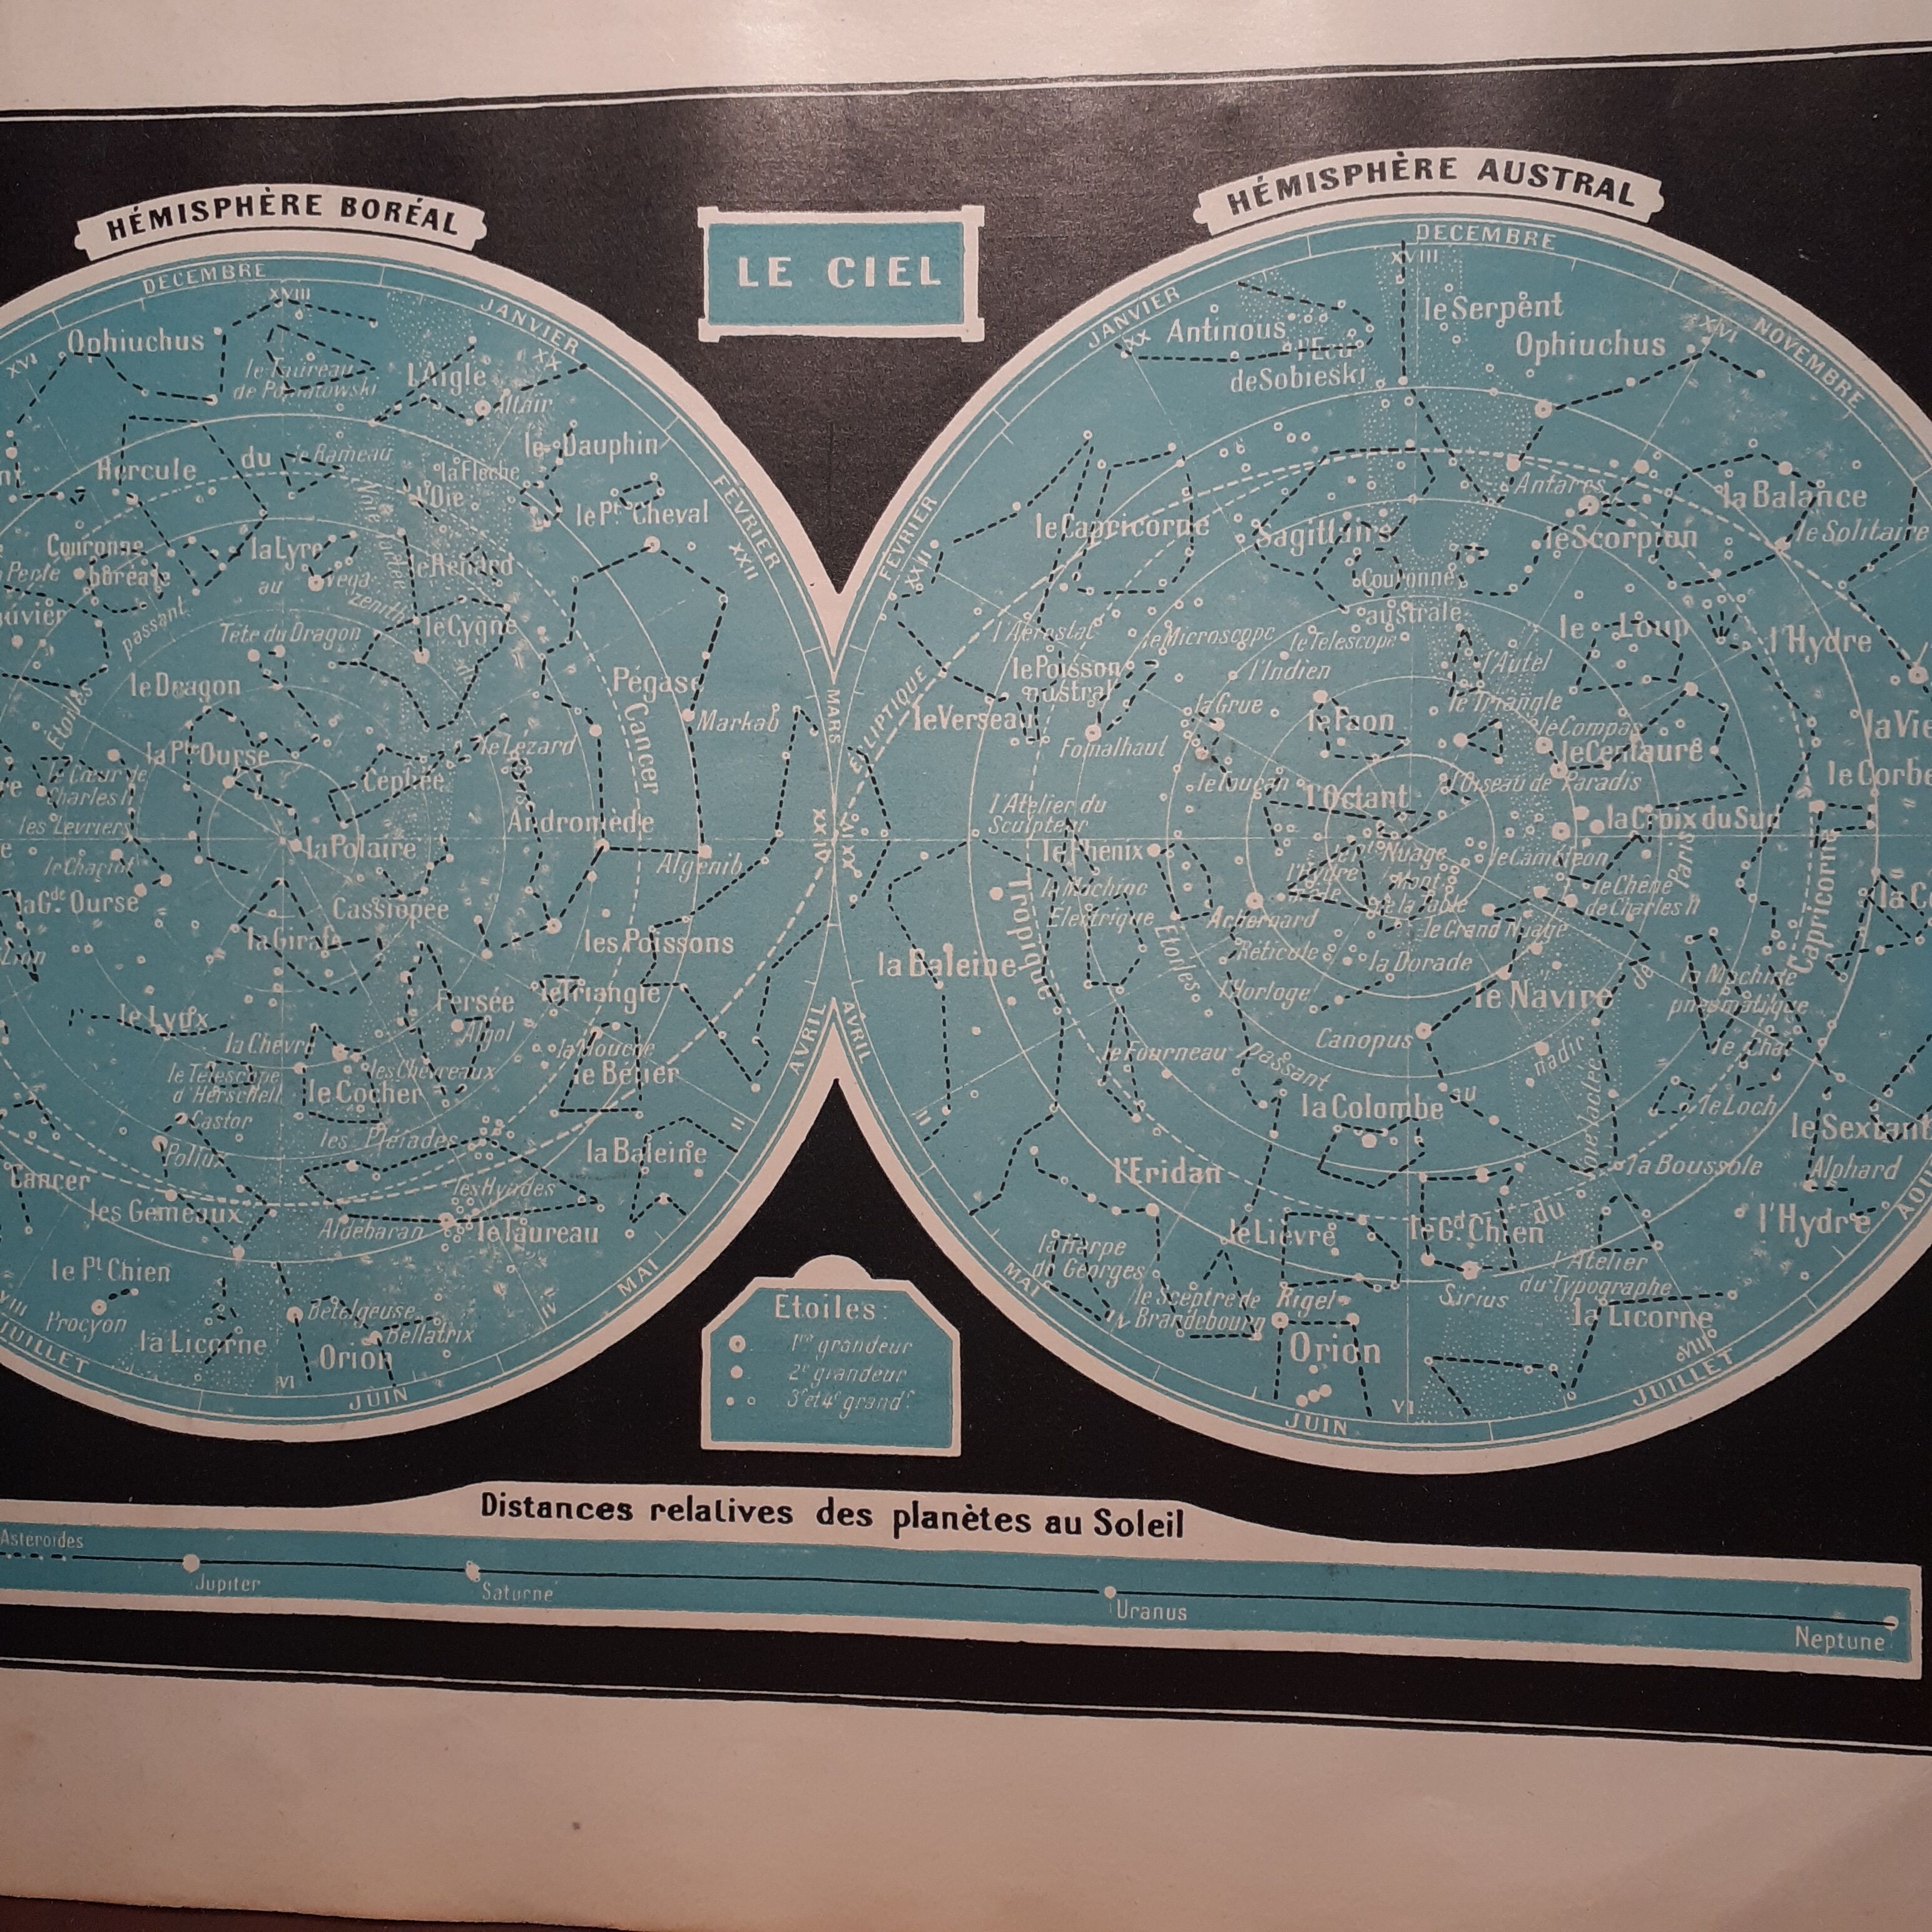 HÉMISPHÈRE BORÉAL
LE CIEL
HÉMISPHÈRE AUSTRAL
DECEMBRE
XVIII
JANVIER
XX
XVI
Ophiuchus
le Taureau
de Poniatowski
l'Aigle
Altaïr
le Dauphin
Hercule
du
le Rameau
la Fleche
l'Oie
le Pt. Cheval
FÉVRIER
XXII
Couronne
boréale
Perle
la Lyre
Vega
le Renard
au
zenith
passant
Voie lactée
Tête du Dragon
le Cygne
le Dragon
Etoiles
Pégase
Markab
Cancer
MARS
la Pte Ourse
le Lezard
Céphée
le Cœur de
Charles II
les Levriers
Andromède
la Polaire
Algenib
le Chariot
la Gde. Ourse
Cassiopée
la Girafe
les Poissons
Lion
Persée
le Triangle
le Lynx
Algol
la Chèvre
la Mouche
le Bélier
le Télescope
d'Herschell
les Chevreaux
le Cocher
AVRIL
Castor
les Pléiades
II
Pollux
la Baleine
Cancer
les Hyades
les Gémeaux
Aldébaran
le Taureau
le Pt Chien
Procyon
Bételgeuse
Bellatrix
la Licorne
Orion
MAI
IV
VI
JUIN
JUILLET
VIII
DECEMBRE
XVIII
JANVIER
XX
le Serpent
Antinous
Ophiuchus
l'Ecu
de Sobieski
XVI
NOVEMBRE
FÉVRIER
XXII
Antarès
la Balance
le Capricorne
Sagittaire
le Scorpion
le Solitaire
Couronne
australe
l'Aérostat
le Microscope
le Télescope
le Loup
l'Hydre
le Poisson
austral
l'Indien
l'Autel
ECLIPTIQUE
le Verseau
la Grue
le Triangle
le Paon
le Compas
Fomalhaut
le Centaure
le Toucan
l'Octant
l'Oiseau de Paradis
l'Atelier du
Sculpteur
la Croix du Sud
le Phénix
Nuage
le Caméléon
Paris
Capricorne
la Machine
Electrique
Mont
de la Table
le Chêne
de Charles II
Achernard
le Grand Nuage
Tropique
Etoiles
la Baleine
Réticule
la Dorade
de
l'Horloge
le Navire
la Machine
pneumatique
Canopus
nadir
le Fourneau
Passant
le Chat
AVRIL
la Colombe
au
le Loch
II
Voie lactée
le Sextant
l'Eridan
la Boussole
Alphard
du
le Lièvre
le Gd. Chien
l'Hydre
la Harpe
de Georges
l'Atelier
du Typographe
le Sceptre de
Brandebourg
Rigel
Sirius
la Licorne
MAI
IV
Orion
VIII
JUIN
VI
JUILLET
Étoiles:
1re grandeur
2e grandeur
3e et 4e grandr
Distances relatives des planètes au Soleil
Asteroïdes
Jupiter
Saturne
Uranus
Neptune